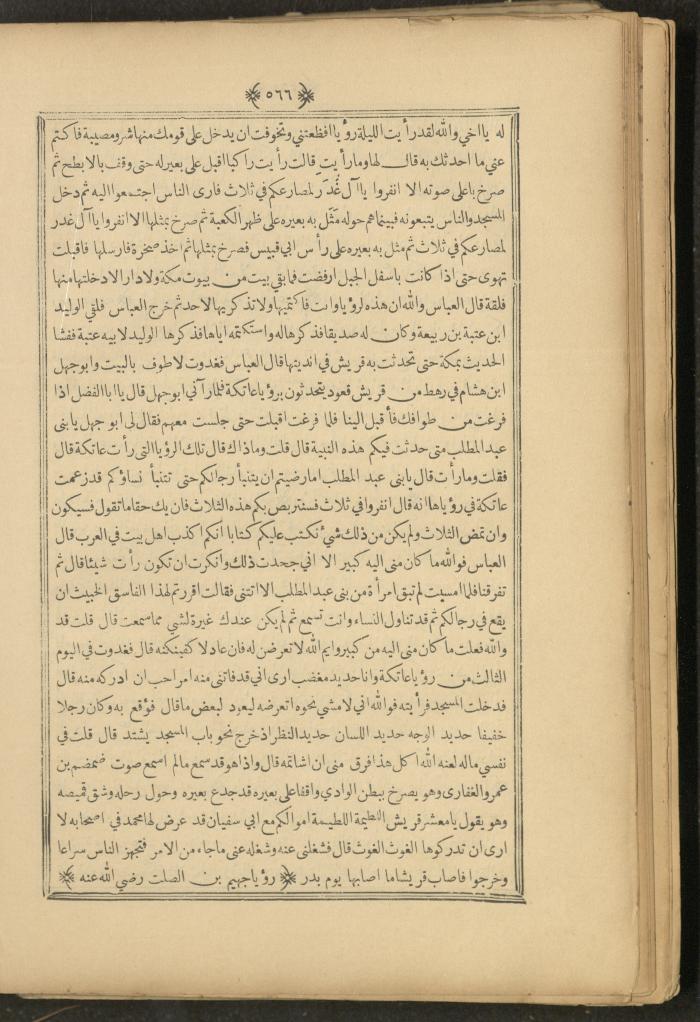 ٥٦٦
له يا اخي والله لقد رأيت الليلة رؤيا افظعتني وتخوفت ان يدخل على قومك منها شر ومصيبة فاكتم
عني ما احدثك به قال لها وما رأيت قالت رأيت راكبا اقبل على بعير له حتى وقف بالابطح ثم
صرخ باعلى صوته الا انفروا يا آل غُدَر لمصارعكم في ثلاث فارى الناس اجتمعوا اليه ثم دخل
المسجد والناس يتبعونه فبينما هم حوله مَثّل به بعيره على ظهر الكعبة ثم صرخ بمثلها الا انفروا يا آل غدر
لمصارعكم في ثلاث ثم مثل به بعيره على رأس ابي قبيس فصرخ بمثلها ثم اخذ صخرة فارسلها فاقبلت
تهوى حتى اذا كانت باسفل الجبل ارفضت فما بقي بيت من بيوت مكة ولا دار الا دخلتها منها
فلقة قال العباس والله ان هذه لرؤيا وانت فاكتميها ولا تذكريها لاحد ثم خرج العباس فلقي الوليد
ابن عتبة بن ربيعة وكان له صديقا فذكرها له واستكتمه اياها فذكرها الوليد لابيه عتبة ففشا
الحديث بمكة حتى تحدثت به قريش في انديتها قال العباس فغدوت لاطوف بالبيت وابو جهل
ابن هشام في رهط من قريش قعود يتحدثون برؤيا عاتكة فلما رآني ابو جهل قال يا ابا الفضل اذا
فرغت من طوافك فأقبل الينا فلما فرغت اقبلت حتى جلست معهم فقال لي ابو جهل يا بنى
عبد المطلب متى حدثت فيكم هذه النبية قال قلت وما ذاك قال تلك الرؤيا التى رأت عاتكة قال
فقلت وما رأت قال يا بنى عبد المطلب اما رضيتم ان يتنبأ رجالكم حتى تتنبأ نساؤكم قد زعمت
عاتكة في رؤياها انه قال انفروا في ثلاث فسنتربص بكم هذه الثلاث فان يك حقا ما تقول فسيكون
وان تمض الثلاث ولم يكن من ذلك شئ نكتب عليكم كتابا انكم اكذب اهل بيت في العرب قال
العباس فوالله ما كان منى اليه كبير الا اني جحدت ذلك وانكرت ان تكون رأت شيئا قال ثم
تفرقنا فلما امسيت لم تبق امرأة من بنى عبد المطلب الا اتتنى فقالت اقررتم لهذا الفاسق الخبيث ان
يقع في رجالكم ثم قد تناول النساء وانت تسمع ثم لم يكن عندك غيرة لشي مما سمعت قال قلت قد
والله فعلت ما كان منى اليه من كبير وايم الله لا تعرضن له فان عاد لاكفينكنه قال فغدوت في اليوم
الثالث من رؤيا عاتكة وانا حديد مغضب ارى اني قد فاتنى منه امر احب ان ادركه منه قال
فدخلت المسجد فرأيته فوالله اني لامشي نحوه اتعرضه ليعود لبعض ما قال فؤقع به وكان رجلا
خفيفا حديد الوجه حديد اللسان حديد النظر اذ خرج نحو باب المسجد يشتد قال قلت في
نفسي ماله لعنه الله اكل هذا فرق منى ان اشاتمه قال واذا هو قد سمع مالم اسمع صوت ضمضم بن
عمرو الغفارى وهو يصرخ ببطن الوادي واقفا على بعيره قد جدع بعيره وحول رحله وشق قميصه
وهو يقول يا معشر قريش اللطيمة اللطيمة اموالكم مع ابي سفيان قد عرض لها محمد في اصحابه لا
ارى ان تدركوها الغوث الغوث قال فشغلني عنه وشغله عنى ما جاء من الامر فتجهز الناس سراعا
وخرجوا فاصاب قريشا ما اصابها يوم بدر رؤيا جهيم بن الصلت رضي الله عنه